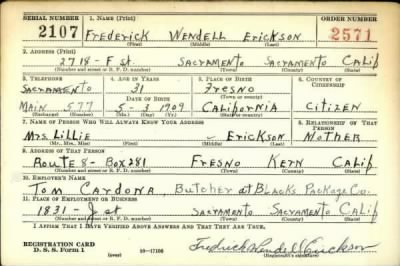 SERIAL NUMBER 1. NAME (Print) ORDER NUMBER
2107 FREDERICK WENDELL ERICKSON 2571
(First) (Middle) (Last)
2. ADDRESS (Print)
2718 - F st SACRAMENTO SACRAMENTO CALIF
(Number and street or R. F. D. number) (Town) (County) (State)
3. TELEPHONE 4. AGE IN YEARS 5. PLACE OF BIRTH 6. COUNTRY OF CITIZENSHIP
SACRAMENTO 31 FRESNO
DATE OF BIRTH
MAIN 577 5-3 1909 CALIFORNIA CITIZEN
7. NAME OF PERSON WHO WILL ALWAYS KNOW YOUR ADDRESS 8. RELATIONSHIP OF THAT PERSON
MRS. LILLIE ERICKSON MOTHER
(Mr., Mrs., Miss) (First) (Middle) (Last)
9. ADDRESS OF THAT PERSON
ROUTE 8 - BOX 281 FRESNO KERN CALIF
(Number and street or R. F. D. number) (Town) (County) (State)
10. EMPLOYER'S NAME
TOM CARDONA, BUTCHER at BLACKS PACKAGE CO.
11. PLACE OF EMPLOYMENT OR BUSINESS
1831 - J st SACRAMENTO SACRAMENTO CALIF
(Number and street or R. F. D. number) (Town) (County) (State)
I AFFIRM THAT I HAVE VERIFIED ABOVE ANSWERS AND THAT THEY ARE TRUE.
REGISTRATION CARD
D. S. S. Form 1 (over) 16-17105 Fredrick Wendell Erickson
(Registrant's signature)